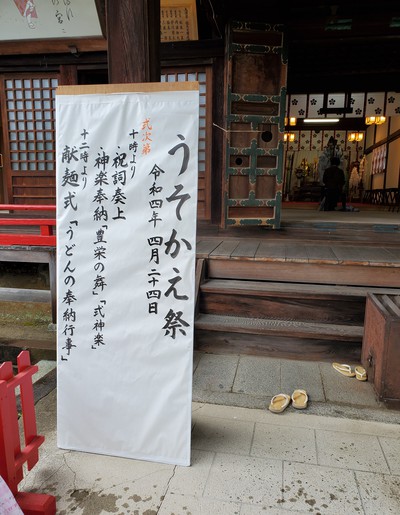 うそかえ祭
令和四年 四月二十四日
式次第
十時より
・祝詞奏上
・神楽奉納「豊栄の舞」「式神楽」
十二時より
献麺式「うどんの奉納行事」